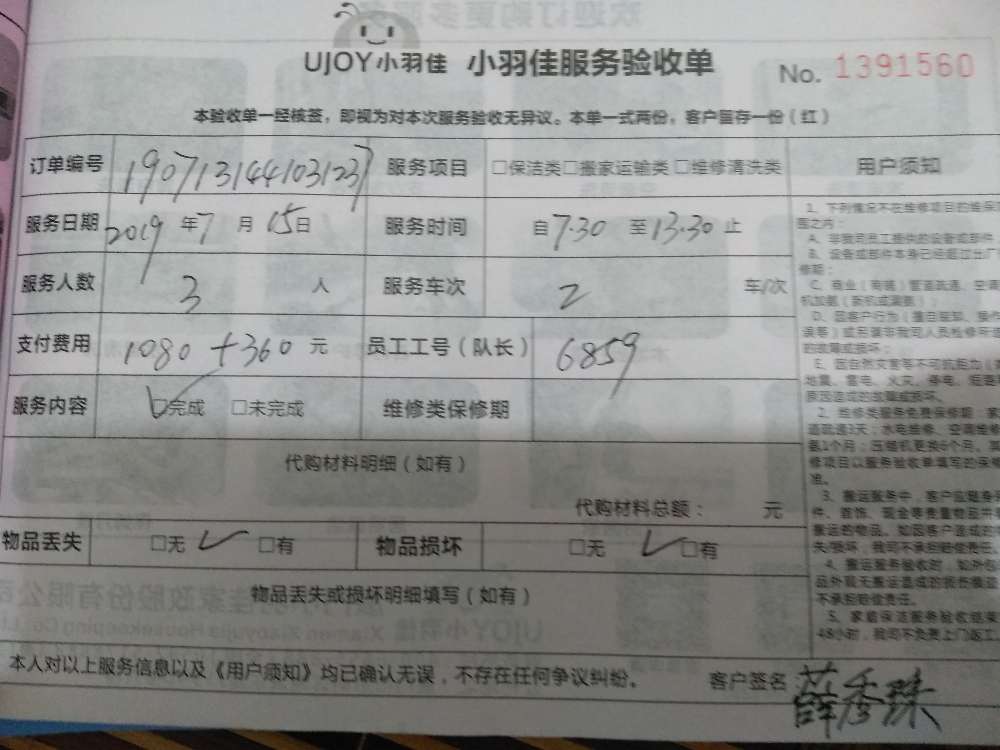 UJOY小羽佳 小羽佳服务验收单 No. 1391560
本验收单一经核签，即视为对本次服务验收无异议。本单一式两份，客户留存一份（红）
订单编号 190713144103123 服务项目 □保洁类□搬家运输类 □维修清洗类 用户须知
服务日期 2019 年 7 月 15 日 服务时间 自 7.30 至 13.30 止
服务人数 3 人 服务车次 2 车/次
支付费用 1080 + 360 元 员工工号（队长） 6859
服务内容 □完成 □未完成 维修类保修期
代购材料明细（如有）
代购材料总额： 元
物品丢失 □无 □有 物品损坏 □无 □有
物品丢失或损坏明细填写（如有）
本人对以上服务信息以及《用户须知》均已确认无误，不存在任何争议纠纷。 客户签名 薛秀珠
1、下列情况不在维修项目的维保
围之内：
A、非我司员工提供的设备或部件
B、设备或部件本身已经超过出厂
修期；
C、商业（商铺）管道疏通、空调
机加氨（新机或满氨）
D、因客户行为（擅自
误等）或另请非我司人员检修
的故障或损坏；
E、因自然灾害等不可抗拒力（
地震、雷电、火灾、停电、
原因造成的故障或损坏。
2、维修类服务免费保修期：
道疏通3天；水电维修、空调维修
氨1个月；压缩机更换6个月。
修项目以服务验收单填写的保修
准。
3、搬运服务中，客户应随身
件、首饰、现金等贵重物品
搬运的物品。如因客户造成的
失/损坏，我司不承担赔偿责任。
4、搬运服务验收时，如外包
品外观无搬运造成的损伤痕迹
不承担赔偿责任。
5、家庭保洁服务验收结束
48小时，我司不负责上门返工